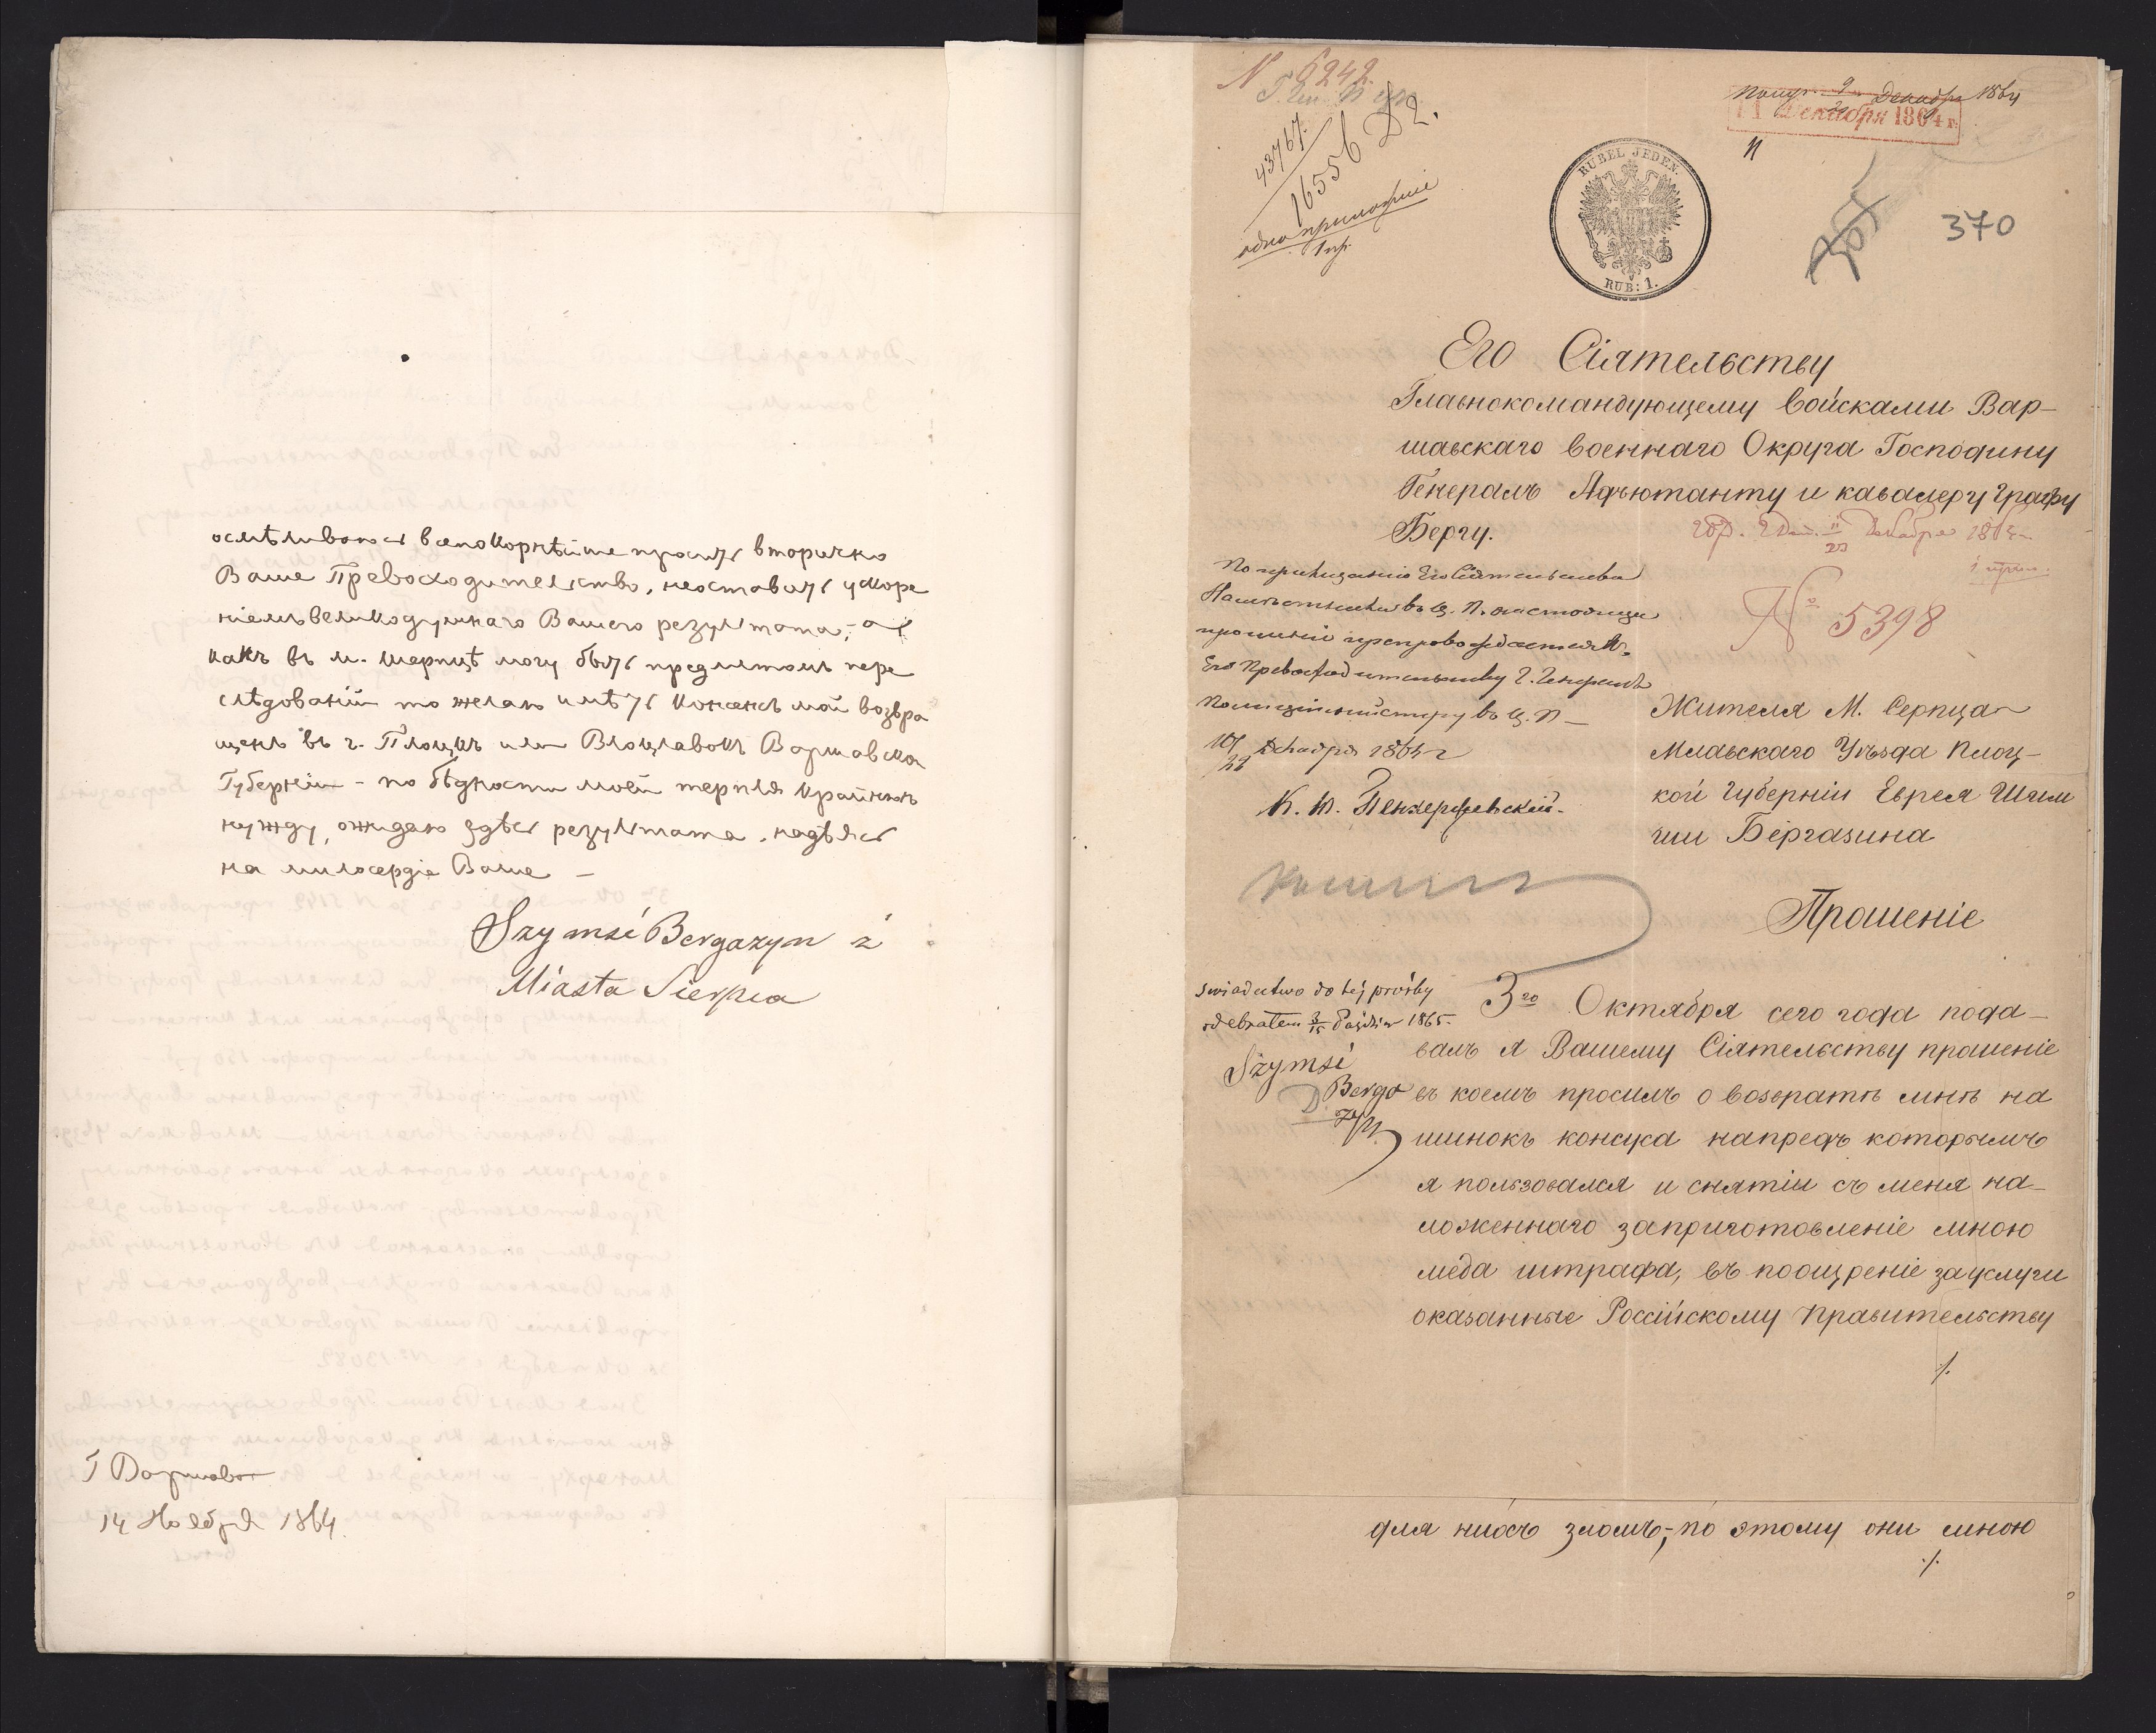 осмѣливаюсь всепокорнѣйше просить вторично
Ваше Превосходительство, неоставить ускоре
ніемъ великодушнаго Вашего результата; а
какъ въ м. Шерпцѣ могу быть предметомъ пере
слѣдованій то желаю имѣть консенсъ мой возвра
щенъ въ г. Плоцкъ или Влоцлавокъ Варшавской
Губерніи - по бѣдности моей терпя крайнюю
нужду, ожидаю здѣсь результата, надѣясь
на милосердіе Ваше -
Szymsi Bergazyn z
Miasta Sierpca
Г Варшава
14 Ноября 1864.
N 6242.
43767.
16556 Д2.
одно приложеніе
1 пр.
Получ. 9 Декабря 1864
11 Декабря 1864 г.
RUBEL JEDEN.
RUB: 1.
370
Его Сіятельству
Главнокомандующему войсками Вар-
шавскаго военнаго Округа Господину
Генералъ Адъютанту и кавалеру графу
Бергу.
11/23 Декабря 1864
1 прил.
№ 5398
По приказанію Его Сіятельства
Намѣстника въ Ц. П. настоящее
прошеніе препровождается къ
Его Превосходительству Г. Генералъ
Полиціймейстеру въ Ц. П -
10/22 Декабря 1864 г
Жителя М. Серпца
Млавскаго Уѣзда Плоц-
кой Губерніи Еврея Шим
ши Бергазина
Прошеніе
swiadectwo do tej prośby
odebrałem 3/15 Paźdz. 1865.
Szymsi
Berga
zyn
3го Октября сего года пода-
валъ я Вашему Сіятельству прошеніе
въ коемъ просилъ о возвратѣ мнѣ на
шинокъ консуса напредъ которымъ
я пользовался и снятіи съ меня на-
ложеннаго заприготовленіе мною
меда штрафа, въ поощреніе за услуги
оказанные Россійскому правительству
./.
для нихъ зломъ;-по этому они мною
./.